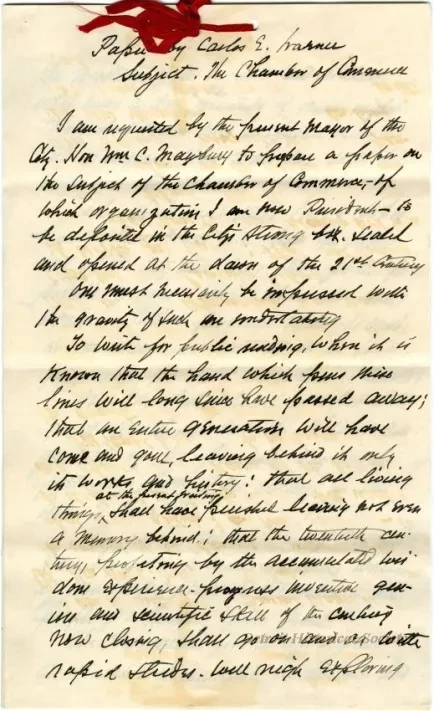 Paper by Carlos E. Warner
Subject. The Chamber of Commerce
I am requested by the present Mayor of the
City. Hon Wm C. Maybury to prepare a paper on
the subject of the Chamber of Commerce, of
which organization I am now President - to
be deposited in the City's strong box. sealed
and opened at the dawn of the 21st Century
One must necessarily be impressed with
the gravity of such an undertaking
To write for public reading, when it is
known that the hand which pens these
lines will long since have passed away;
that an entire generation will have
come and gone, leaving behind it only
its works and history: that all living
at the present
things, shall have perished leaving not even
a memory behind; that the twentieth cen-
tury, profiting by the accumulated wis
dom experience - progress inventive gen-
ius and scientific skill of the century
now closing, shall go on and as with
rapid strides. well nigh exploring